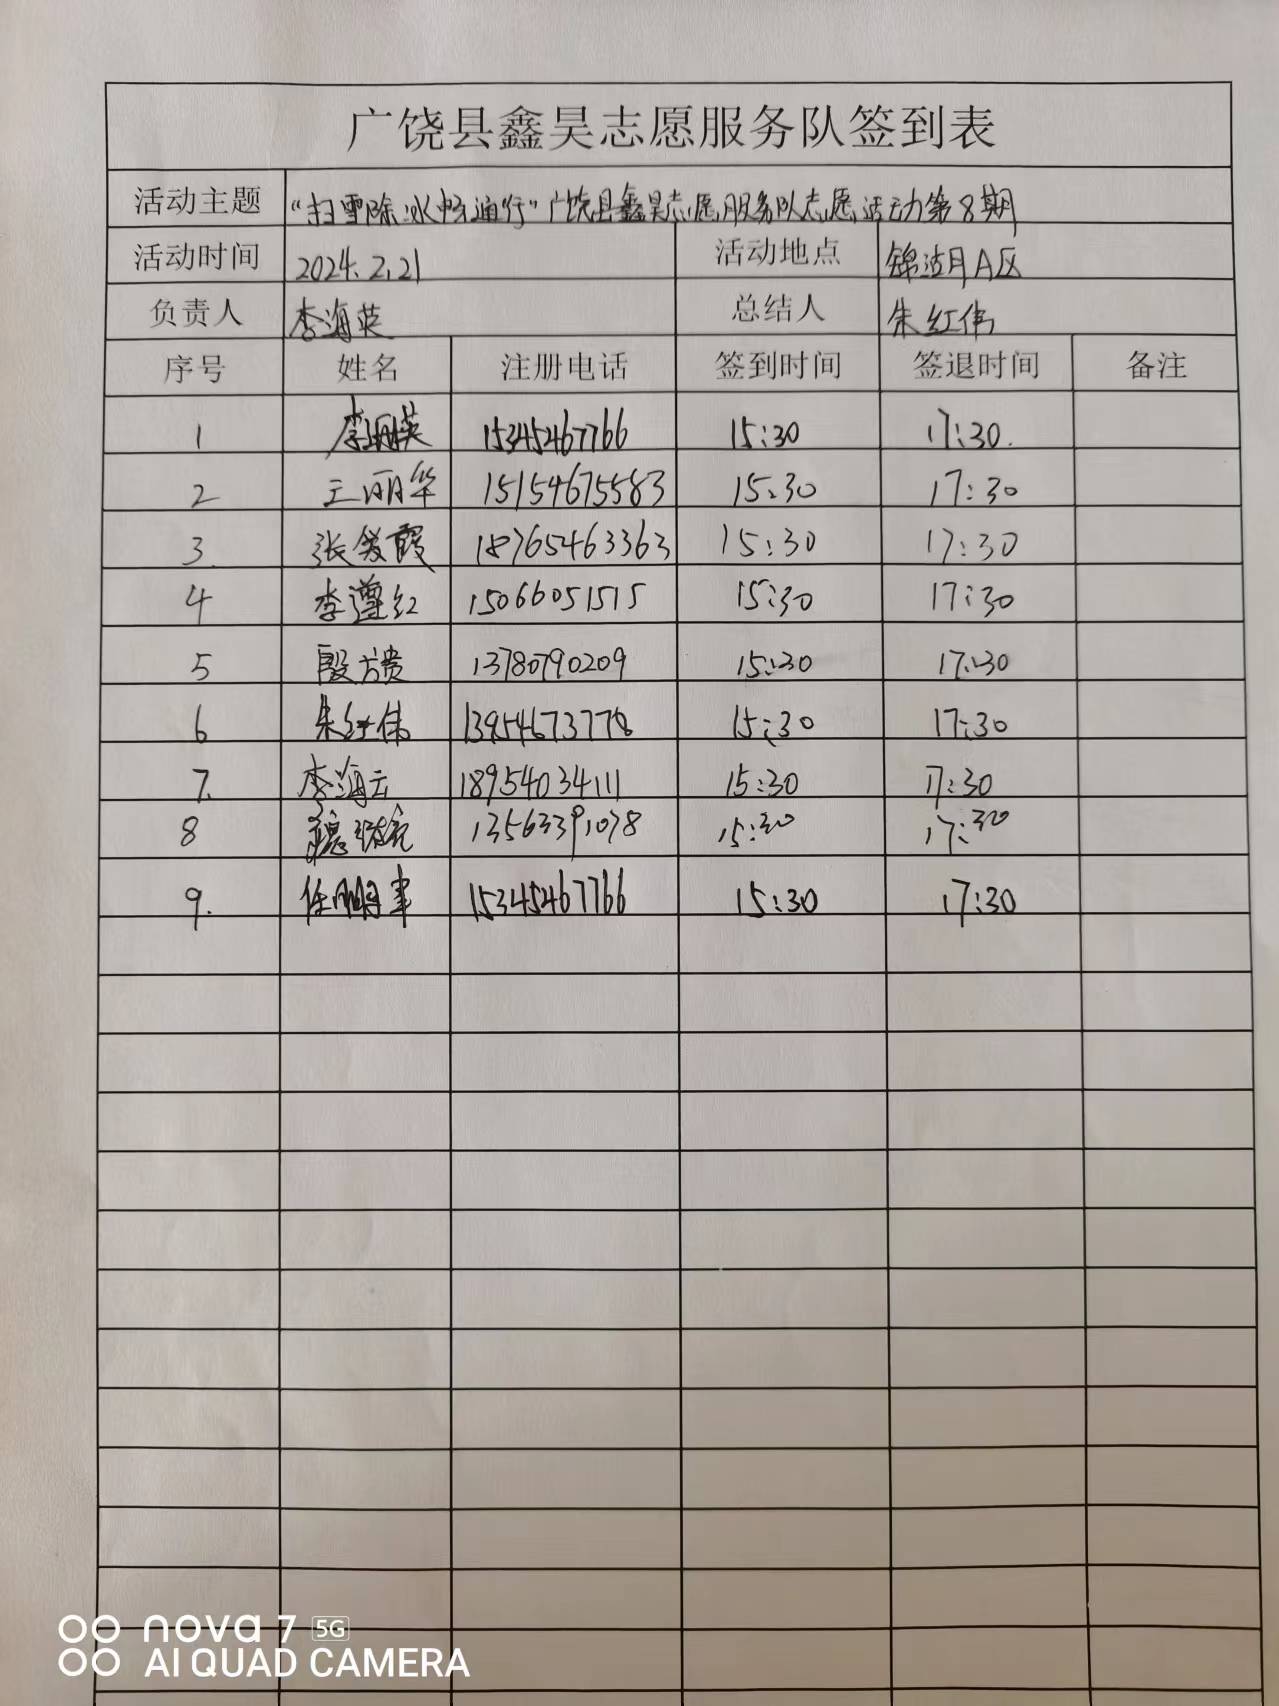 广饶县鑫昊志愿服务队签到表
活动主题 “扫雪除冰畅通行”广饶县鑫昊志愿服务队志愿活动第8期
活动时间 2024.2.21 活动地点 锦湖月A区
负责人 李海英 总结人 朱红伟
序号 姓名 注册电话 签到时间 签退时间 备注
1 李海英 15345467766 15:30 17:30.
2 王丽华 15154675583 15:30 17:30
3. 张爱霞 18765463363 15:30 17:30
4 李遵红 15066051515 15:30 17:30
5 殷方贵 13780790209 15:30 17:30
6 朱红伟 13954673778 15:30 17:30
7. 李海云 18954034111 15:30 17:30
8 13563391078 15:30 17:30
9. 任鹏军 15345467766 15:30 17:30
nova 7 5G
AI QUAD CAMERA